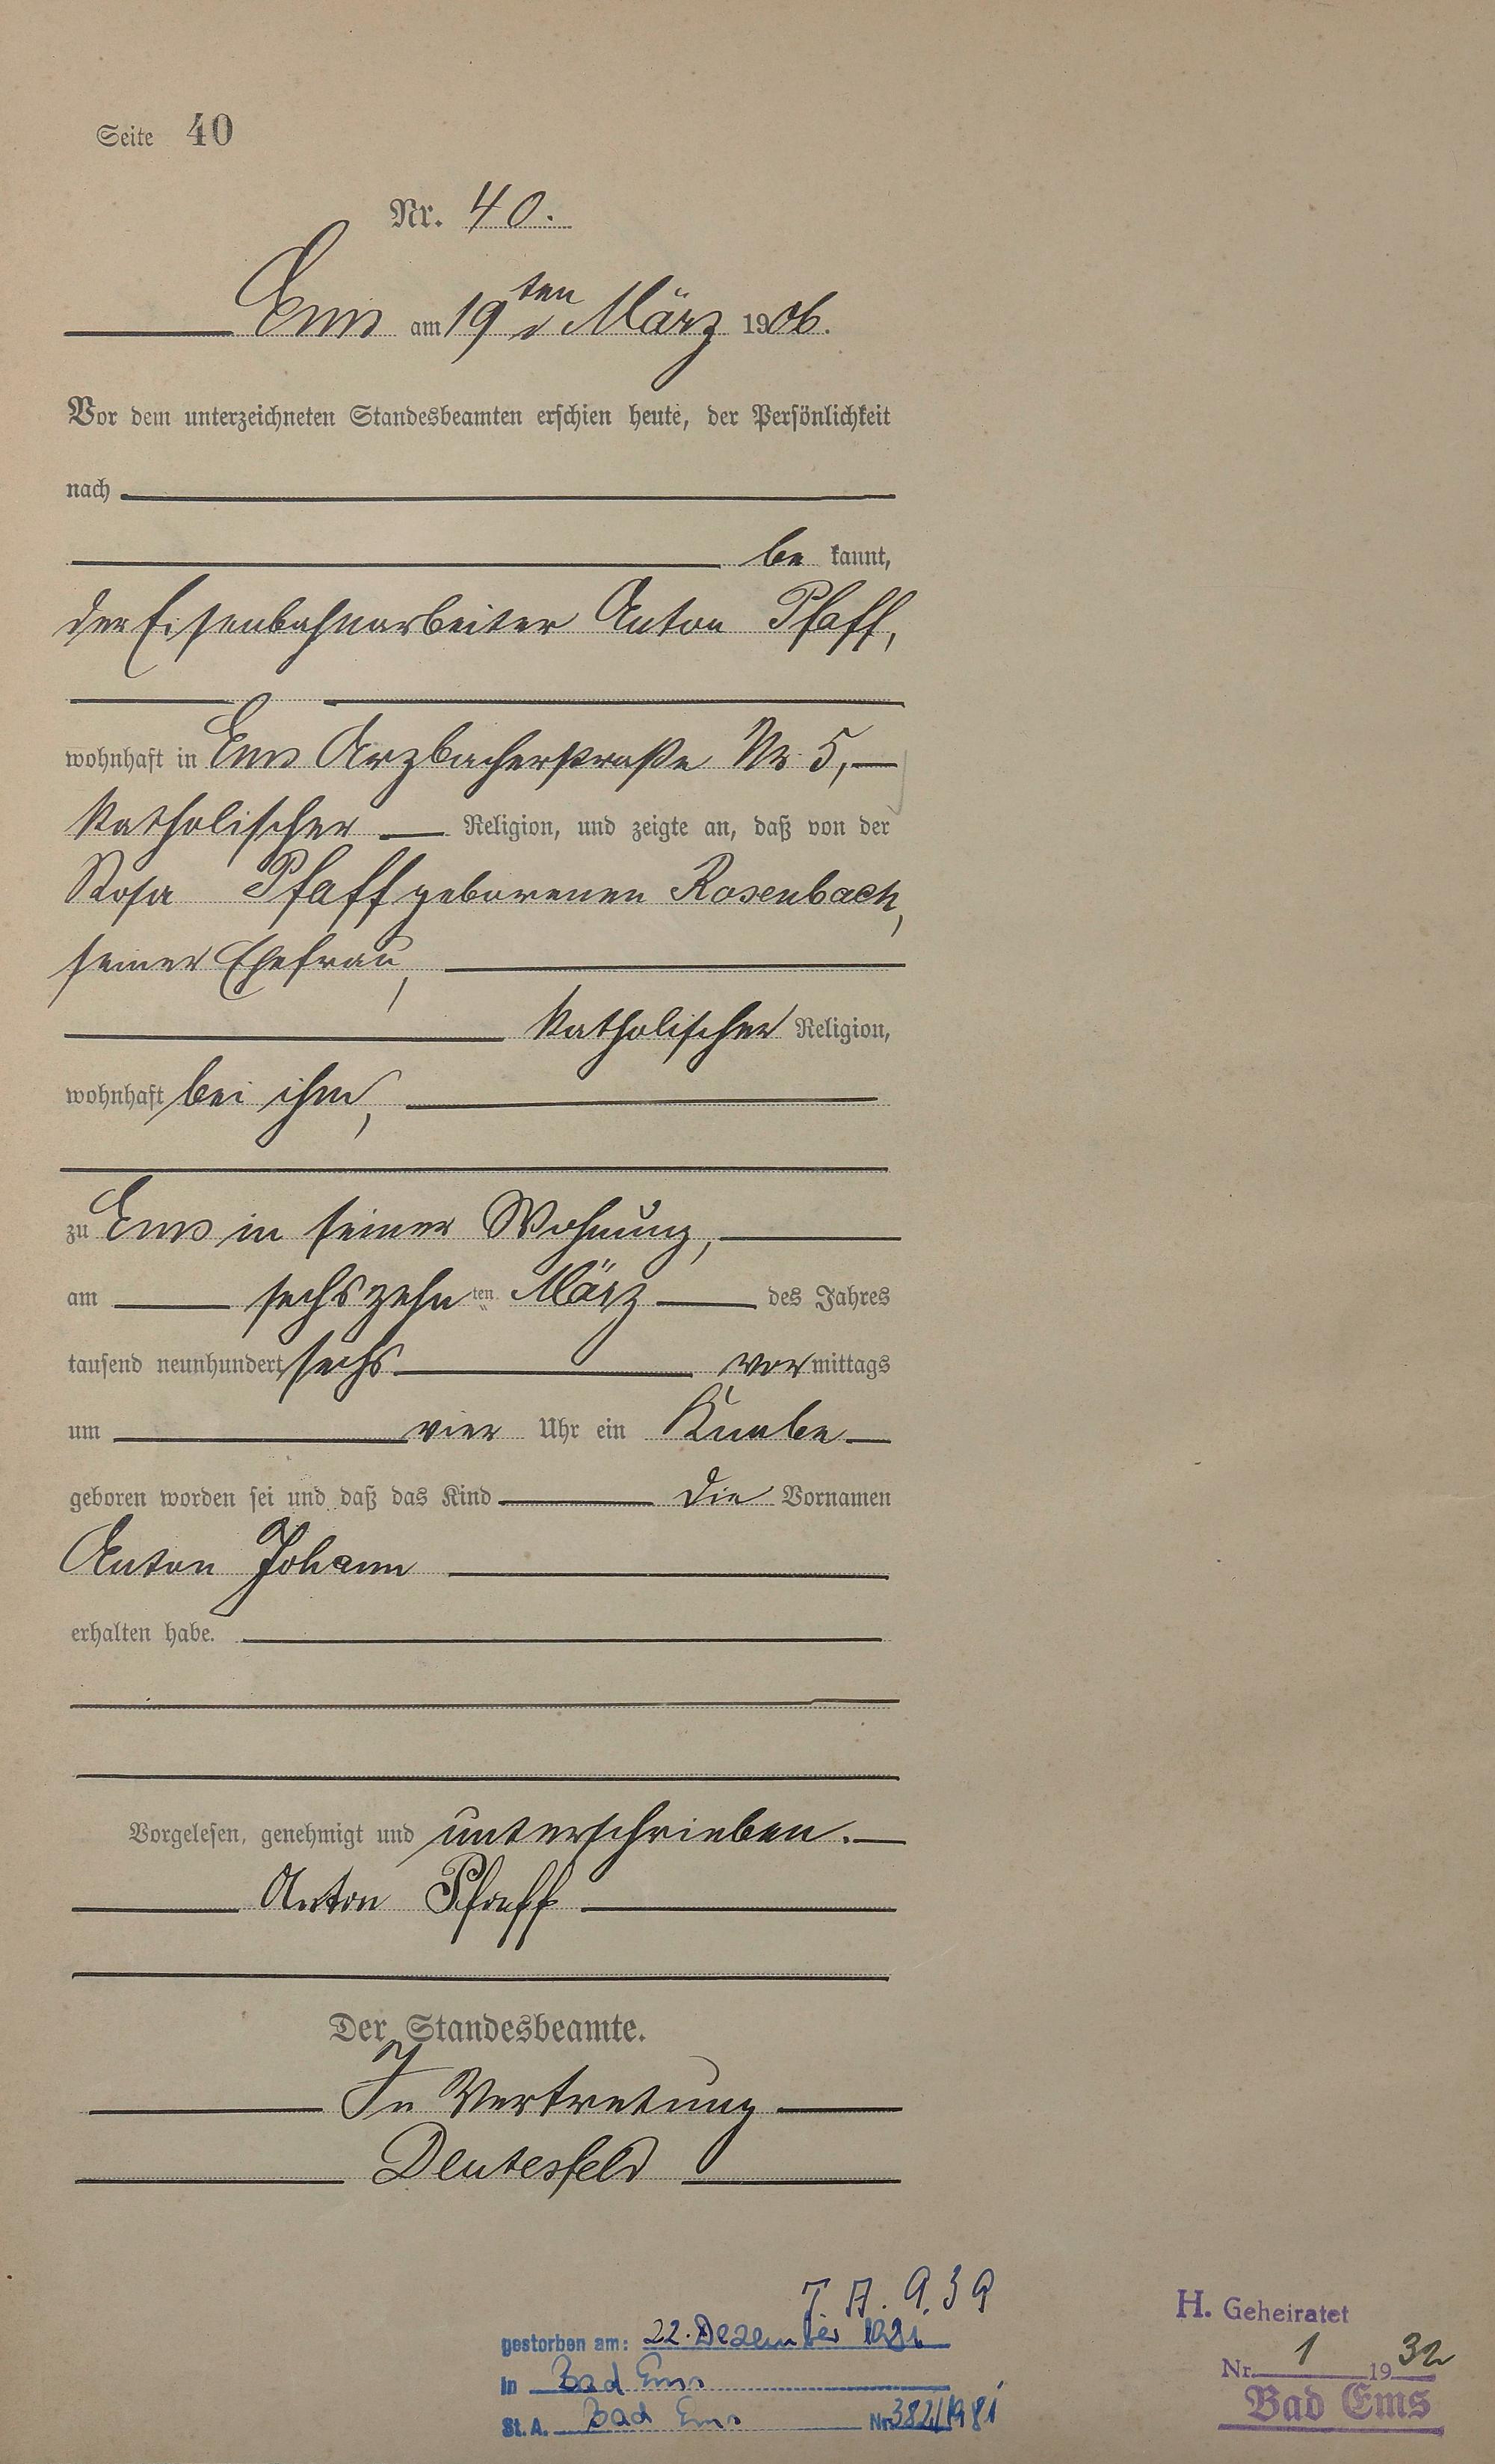 Seite 40
Nr. 40.
Ems am 19ten März 1906.
Vor dem unterzeichneten Standesbeamten erschien heute, der Persönlichkeit
nach
be kannt,
der Eisenbahnarbeiter Anton Pfaff,
wohnhaft in Ems Arzbacherstraße Nr 5,
katholischer Religion, und zeigte an, daß von der
Rosa Pfaff geborenen Rosenbach,
seiner Ehefrau,
katholischer Religion,
wohnhaft bei ihm,
zu Ems in seiner Wohnung,
am sechszehnten März des Jahres
tausend neunhundert sechs vormittags
um vier Uhr ein Knabe
geboren worden sei und daß das Kind die Vornamen
Anton Johann
erhalten habe.
Vorgelesen, genehmigt und unterschrieben.
Anton Pfaff
Der Standesbeamte.
In Vertretung
Deutesfeld
939
gestorben am: 22. Dezember 1981
in Bad Ems
St. A. Bad Ems Nr. 382/1981
H. Geheiratet
Nr. 1 1932
Bad Ems